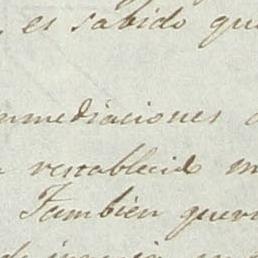 es sabido que
nmediaciones
restablecido
Tambien quer